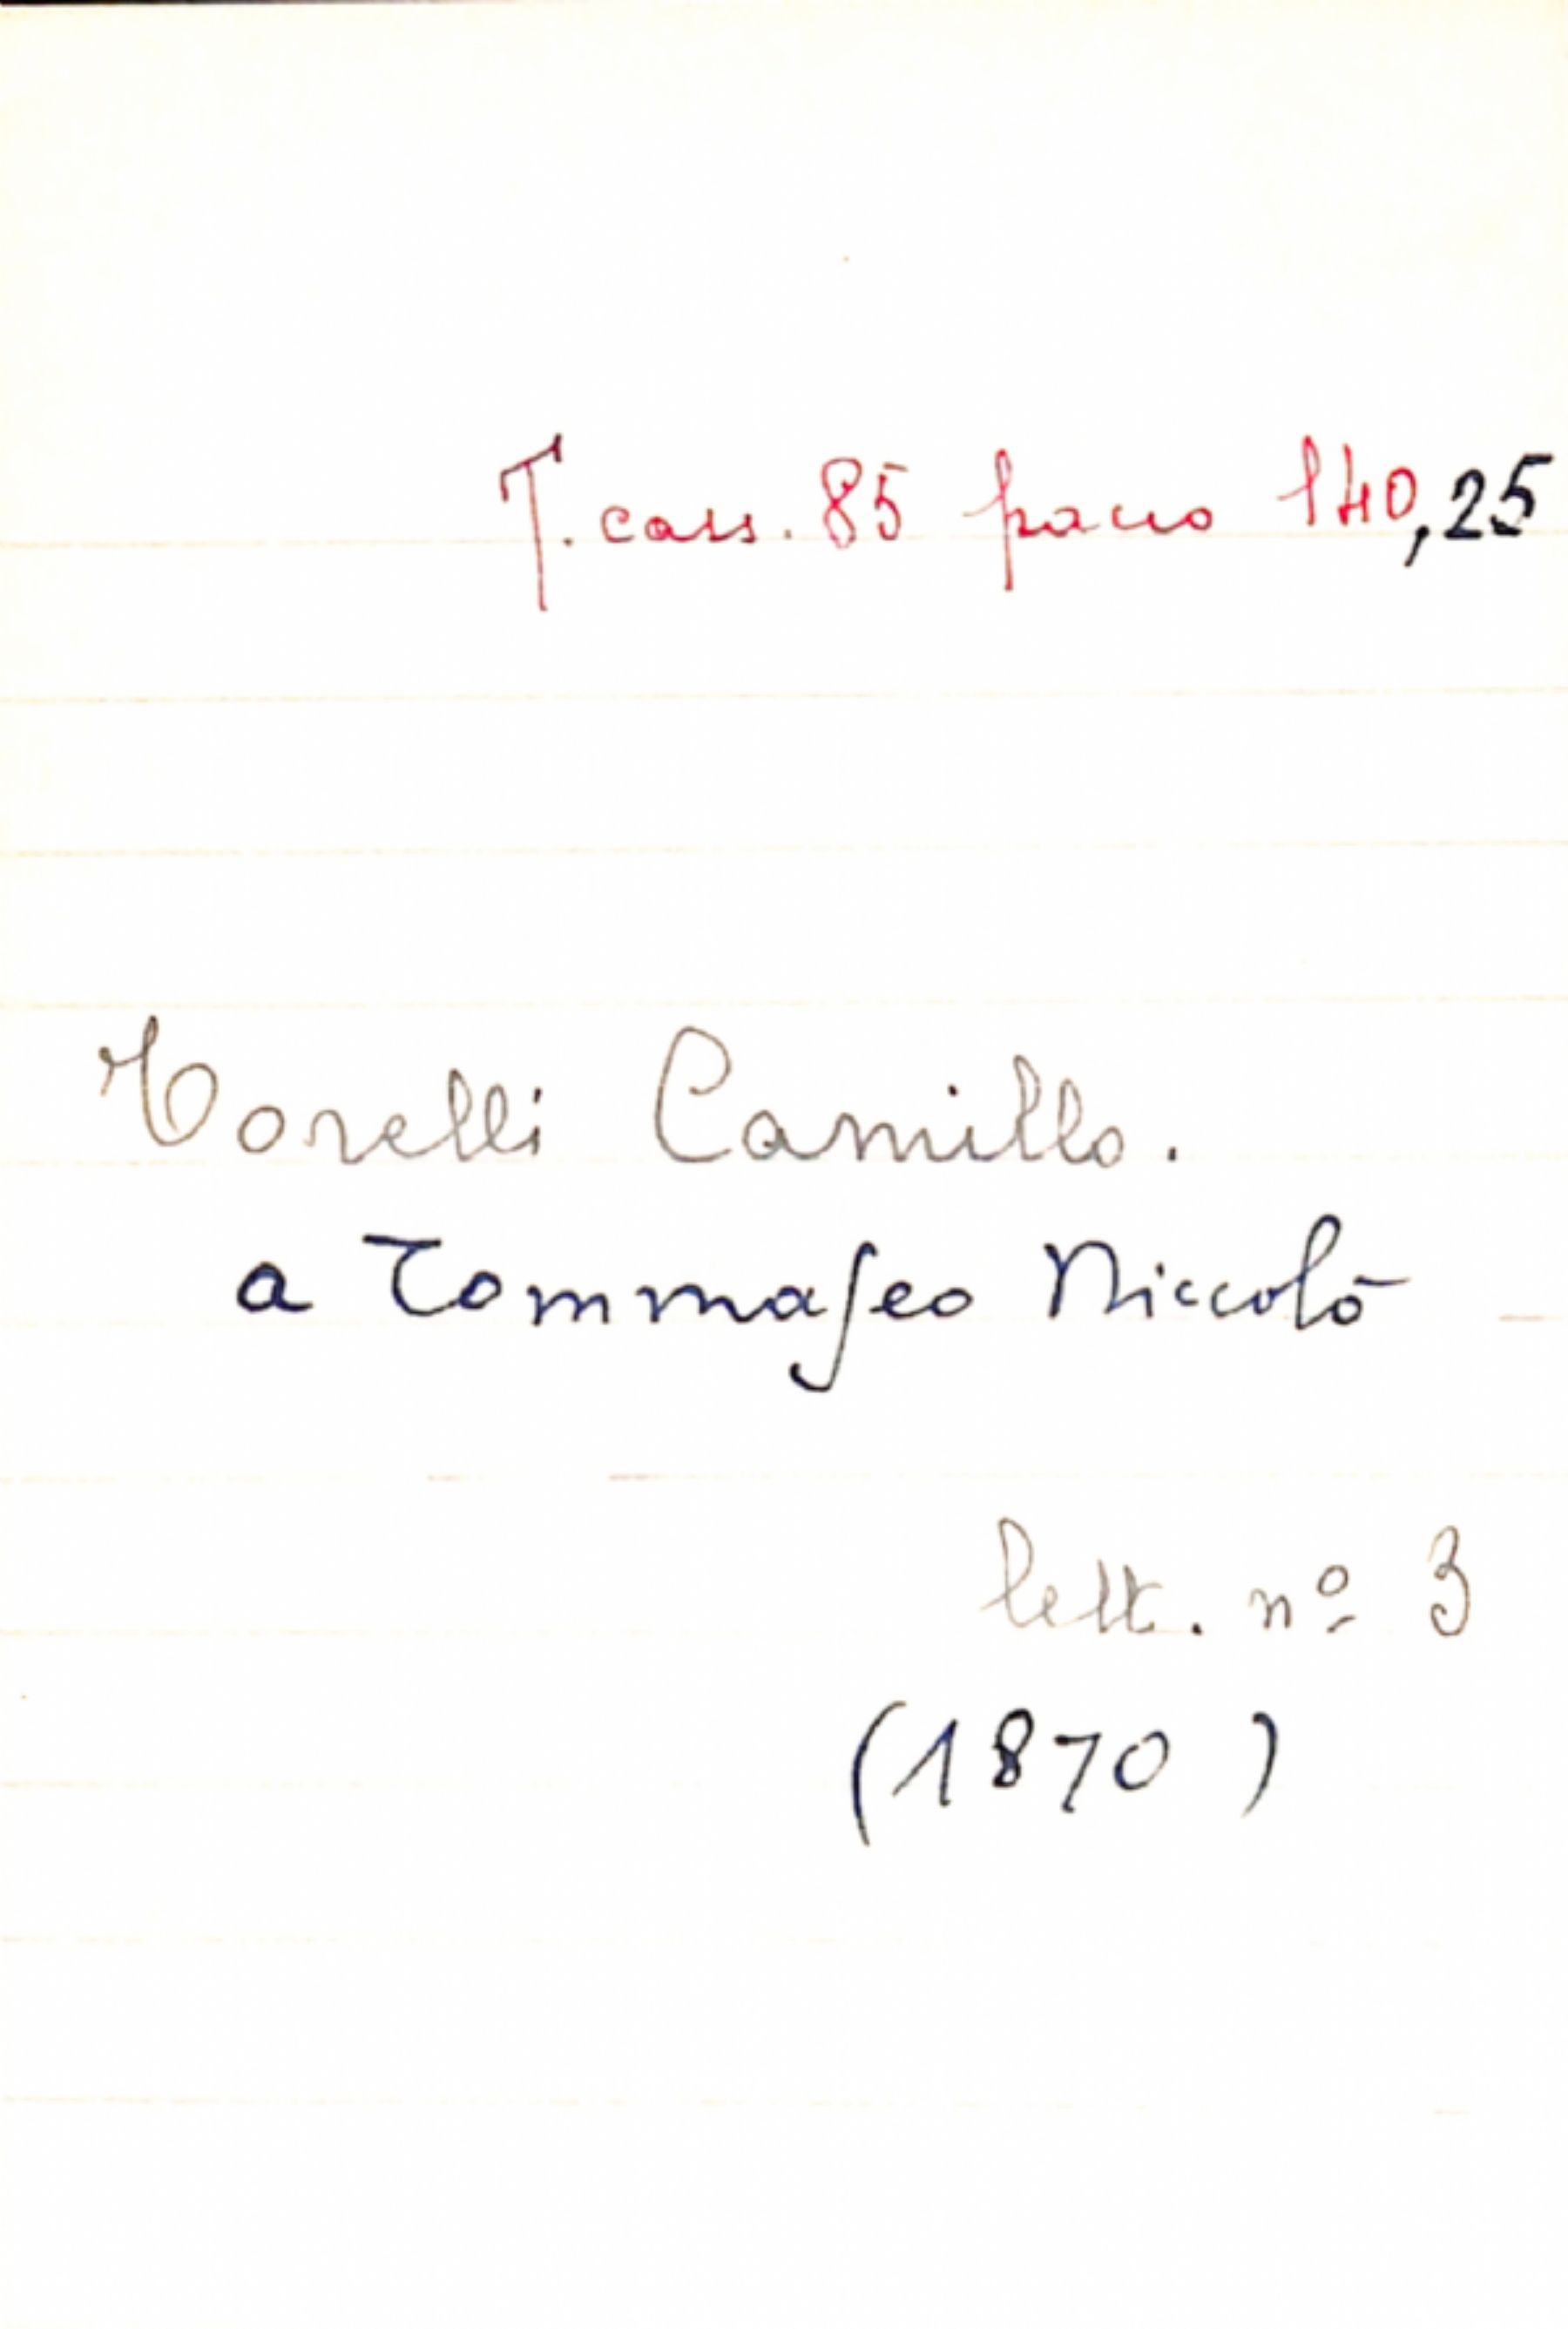 T. cass. 85 pacco 140,25
Torelli Camillo.
a Tommaseo Niccolò
lett. nº 3
(1870)